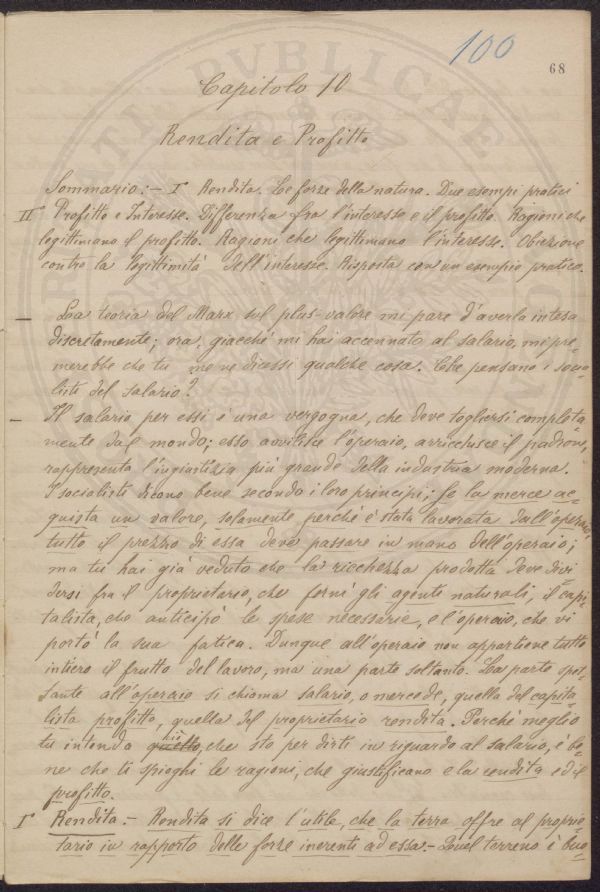 100
68
Capitolo 10
Rendita e Profitto
Sommario:- I° Rendita. Le forze della natura. Due esempi pratici
II° Profitto e Interesse. Differenza fra l'interesse e il profitto. Ragioni che
legittimano il profitto. Ragioni che legittimano l'interesse. Obiezione
contro la legittimità dell'interesse. Risposta con un esempio pratico.
— La teoria del Marx sul plus-valore mi pare d'averla intesa
discretamente; ora, giacchè mi hai accennato al salario, mi pre-
merebbe che tu me ne dicessi qualche cosa. Che pensano i socia-
listi del salario?
— Il salario per essi è una vergogna, che deve togliersi completa-
mente dal mondo; esso avvilisce l'operaio, arricchisce il padrone,
rappresenta l'ingiustizia più grande della industria moderna.
I socialisti dicono bene secondo i loro principi; se la merce ac-
quista un valore, solamente perchè è stata lavorata dall'operaio,
tutto il prezzo di essa deve passare in mano dell'operaio;
ma tu hai già veduto che la ricchezza prodotta deve divi-
dersi fra il proprietario, che fornì gli agenti naturali, il capi-
talista, che anticipò le spese necessarie, e l'operaio, che vi
portò la sua fatica. Dunque all'operaio non appartiene tutto
intiero il frutto del lavoro, ma una parte soltanto. La parte spet-
tante all'operaio si chiama salario, o mercede, quella del capita-
lista profitto, quella del proprietario rendita. Perchè meglio
tu intenda che sto per dirti in riguardo al salario, è be-
ne che ti spieghi le ragioni, che giustificano e la rendita ed il
profitto.
I° Rendita.- Rendita si dice l'utile, che la terra offre al proprie-
tario in rapporto delle forze inerenti ad essa.- Quel terreno è buo-